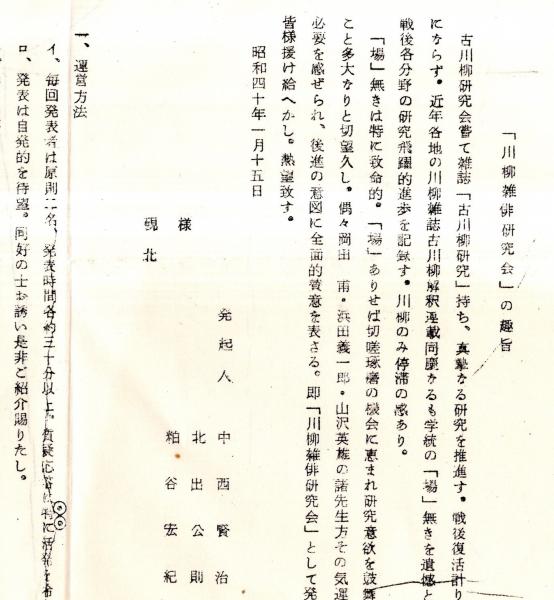 「川柳雑俳研究会」の趣旨
古川柳研究会嘗て雑誌「古川柳研究」持ち、真摯なる研究を推進す。戦後復活計り
にならず。近年各地の川柳雑誌古川柳解釈連載同慶なるも学統の「場」無きを遺憾と
戦後各分野の研究飛躍的進歩を記録す。川柳のみ停滞の感あり。
「場」無きは特に致命的。「場」ありせば切嗟琢磨の機会に恵まれ研究意欲を鼓舞
こと多大なりと切望久し。偶々岡田 甫・浜田義一郎・山沢英雄の諸先生方その気運
必要を感ぜられ、後進の意図に全面的賛意を表さる。即「川柳雑俳研究会」として発
皆様援け給へかし。熱望致す。
昭和四十年一月十五日
発起人 中西賢治
北出公則
粕谷宏紀
様
硯北
一、運営方法
イ、毎回発表者は原則二名、発表時間各約三十分以上。質疑応答は特に活発を希
ロ、発表は自発的を待望。同好の士お誘い是非ご紹介賜りたし。